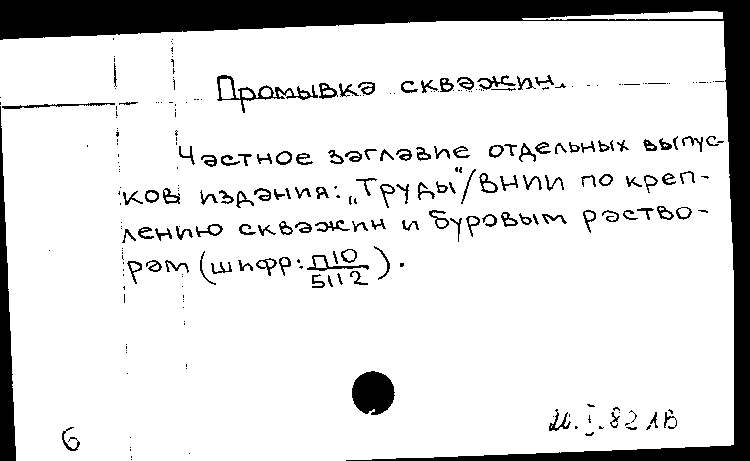 Промывка скважин.
Частное заглавие отдельных выпус-
ков издания: „Труды"/ВНИИ по креп-
лению скважин и буровым раство-
рам (шифр: П10/5112).
6
I.82 ЛВ